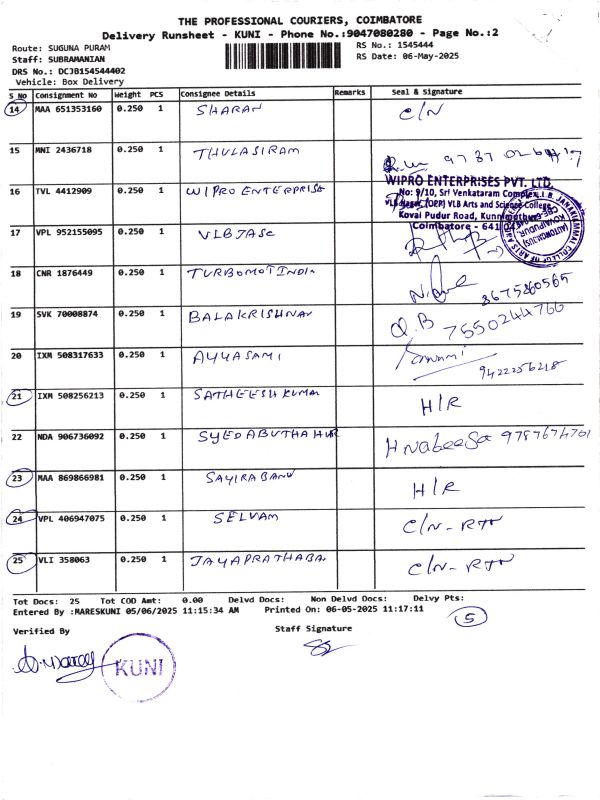 THE PROFESSIONAL COURIERS, COIMBATORE
Delivery Runsheet - KUNI - Phone No.:9047080280 - Page No.:2
Route: SUGUNA PURAM RS No.: 1545444
Staff: SUBRAMANIAN RS Date: 06-May-2025
DRS No.: DCJB154544402
Vehicle: Box Delivery
S No Consignment No Weight PCS Consignee Details Remarks Seal & Signature
14 MAA 651353160 0.250 1 SHARAN C/N
15 MNI 2436718 0.250 1 THULASIRAM
16 TVL 4412909 0.250 1 WIPRO ENTERPRISE
WIPRO ENTERPRISES PVT. LTD.
No: 9/10, Sri Venkataram Complex,
VLB Nagar, (OPP) VLB Arts and Science College,
Kovai Pudur Road, Kunniamuthur,
Coimbatore - 641
17 VPL 952155095 0.250 1 VLBJASC
18 CNR 1876449 0.250 1 TURBOMOTINDIA 8675260565
19 SVK 70008874 0.250 1 BALAKRISHNAN Q.B 7550244766
20 IXM 508317633 0.250 1 AYYASAMI 9422256218
21 IXM 508256213 0.250 1 SATHEESH KUMAR H/R
22 NDA 906736092 0.250 1 SYEDABUTHAHIR H Nabeesa 9787674701
23 MAA 869866981 0.250 1 SAYIRABANU H/R
24 VPL 406947075 0.250 1 SELVAM C/N- RTN
25 VLI 358063 0.250 1 JAYAPRATHABA C/N- RTN
Tot Docs: 25 Tot COD Amt: 0.00 Delvd Docs: Non Delvd Docs: Delvy Pts:
Entered By :MARESKUNI 05/06/2025 11:15:34 AM Printed On: 06-05-2025 11:17:11 5
Verified By Staff Signature
KUNI